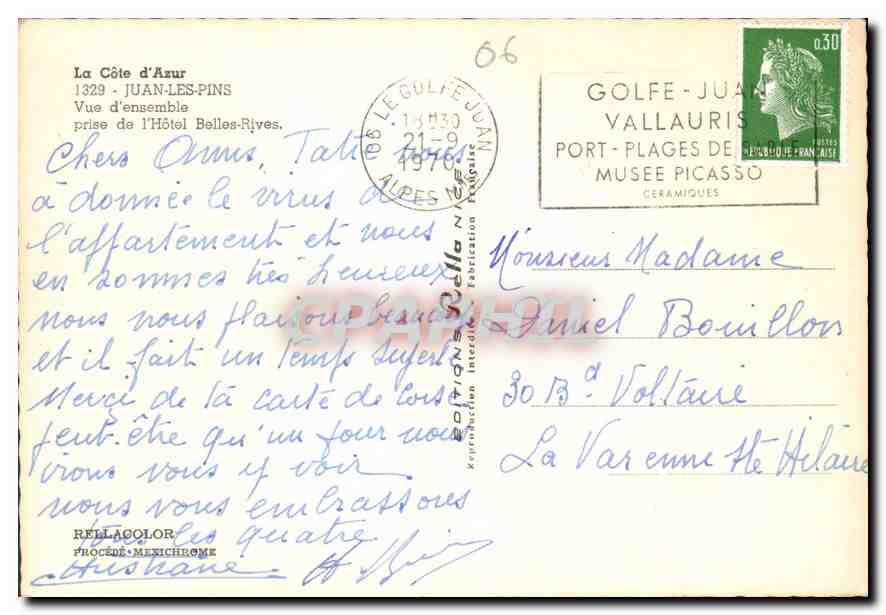 La Côte d'Azur
1329 - JUAN-LES-PINS
Vue d'ensemble
prise de l'Hôtel Belles-Rives.
Chers Amis, Tatie nous
à donnée le virus de
l'affartement et nous
en sommes très heureux
nous nous plaisons beaucoup
et il fait un temps superbe
Merci de ta carte de Corse
peut-être qu'un jour nous
irons vous y voir
nous vous embrassons
tous les quatre
RELLACOLOR
PROCÉDÉ MEXICHROME
EDITIONS Rella NICE
Reproduction interdite Fabrication Française
06
06 LE GOLFE JUAN
18H30
21-9
1970
ALPES-M
GOLFE-JUAN
VALLAURIS
PORT-PLAGES DE
MUSEE PICASSO
CERAMIQUES
0,30
POSTES
REPUBLIQUE FRANCAISE
Monsieur Madame
Daniel Bouillon
30 Bd Voltaire
La Varenne Ste Hilaire